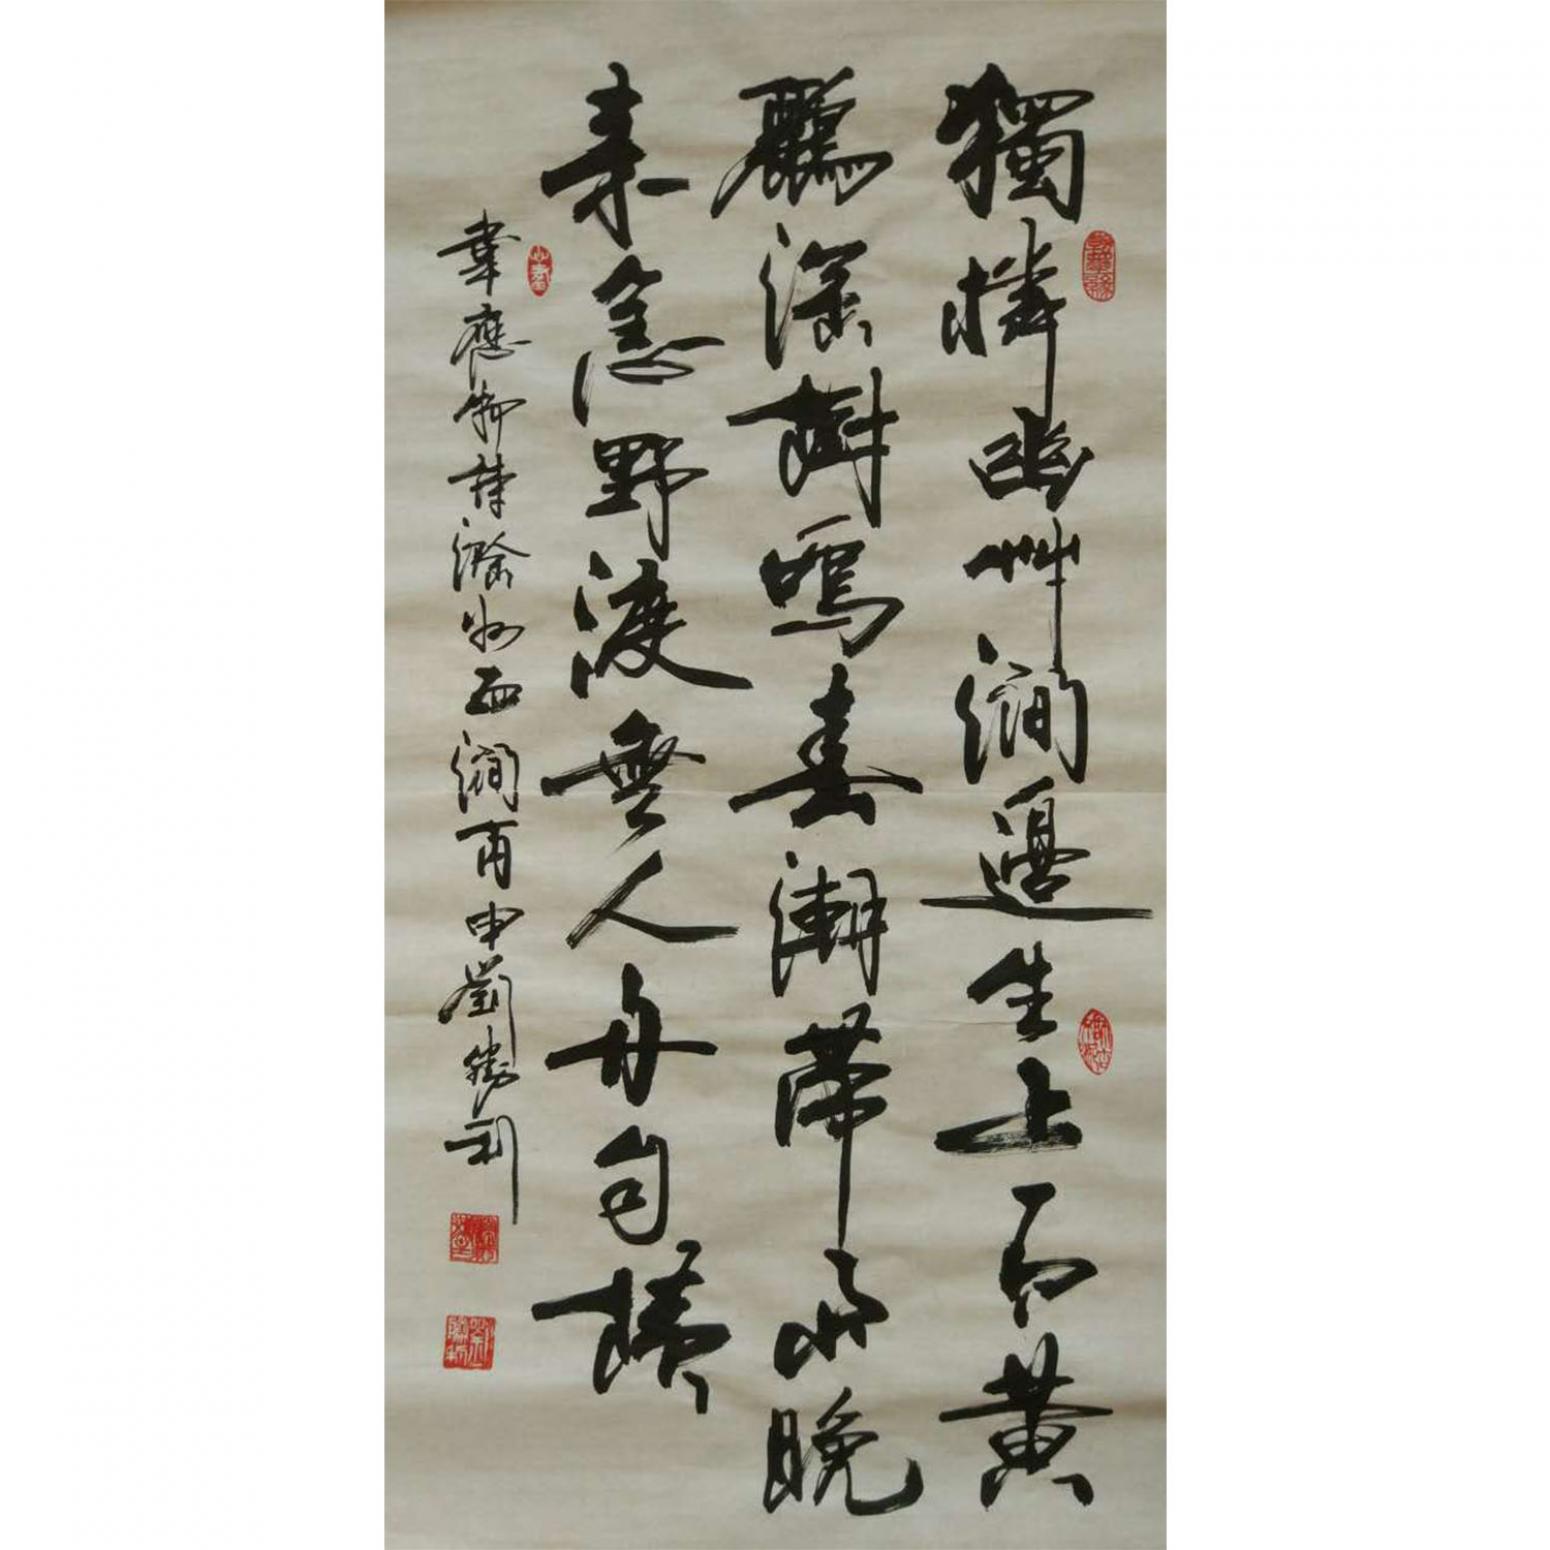 獨憐幽艸澗邊生上有黃
鸝深樹鳴春潮帶雨晚
來急野渡無人舟自橫
韋應物詩滁州西澗丙申劉勝利